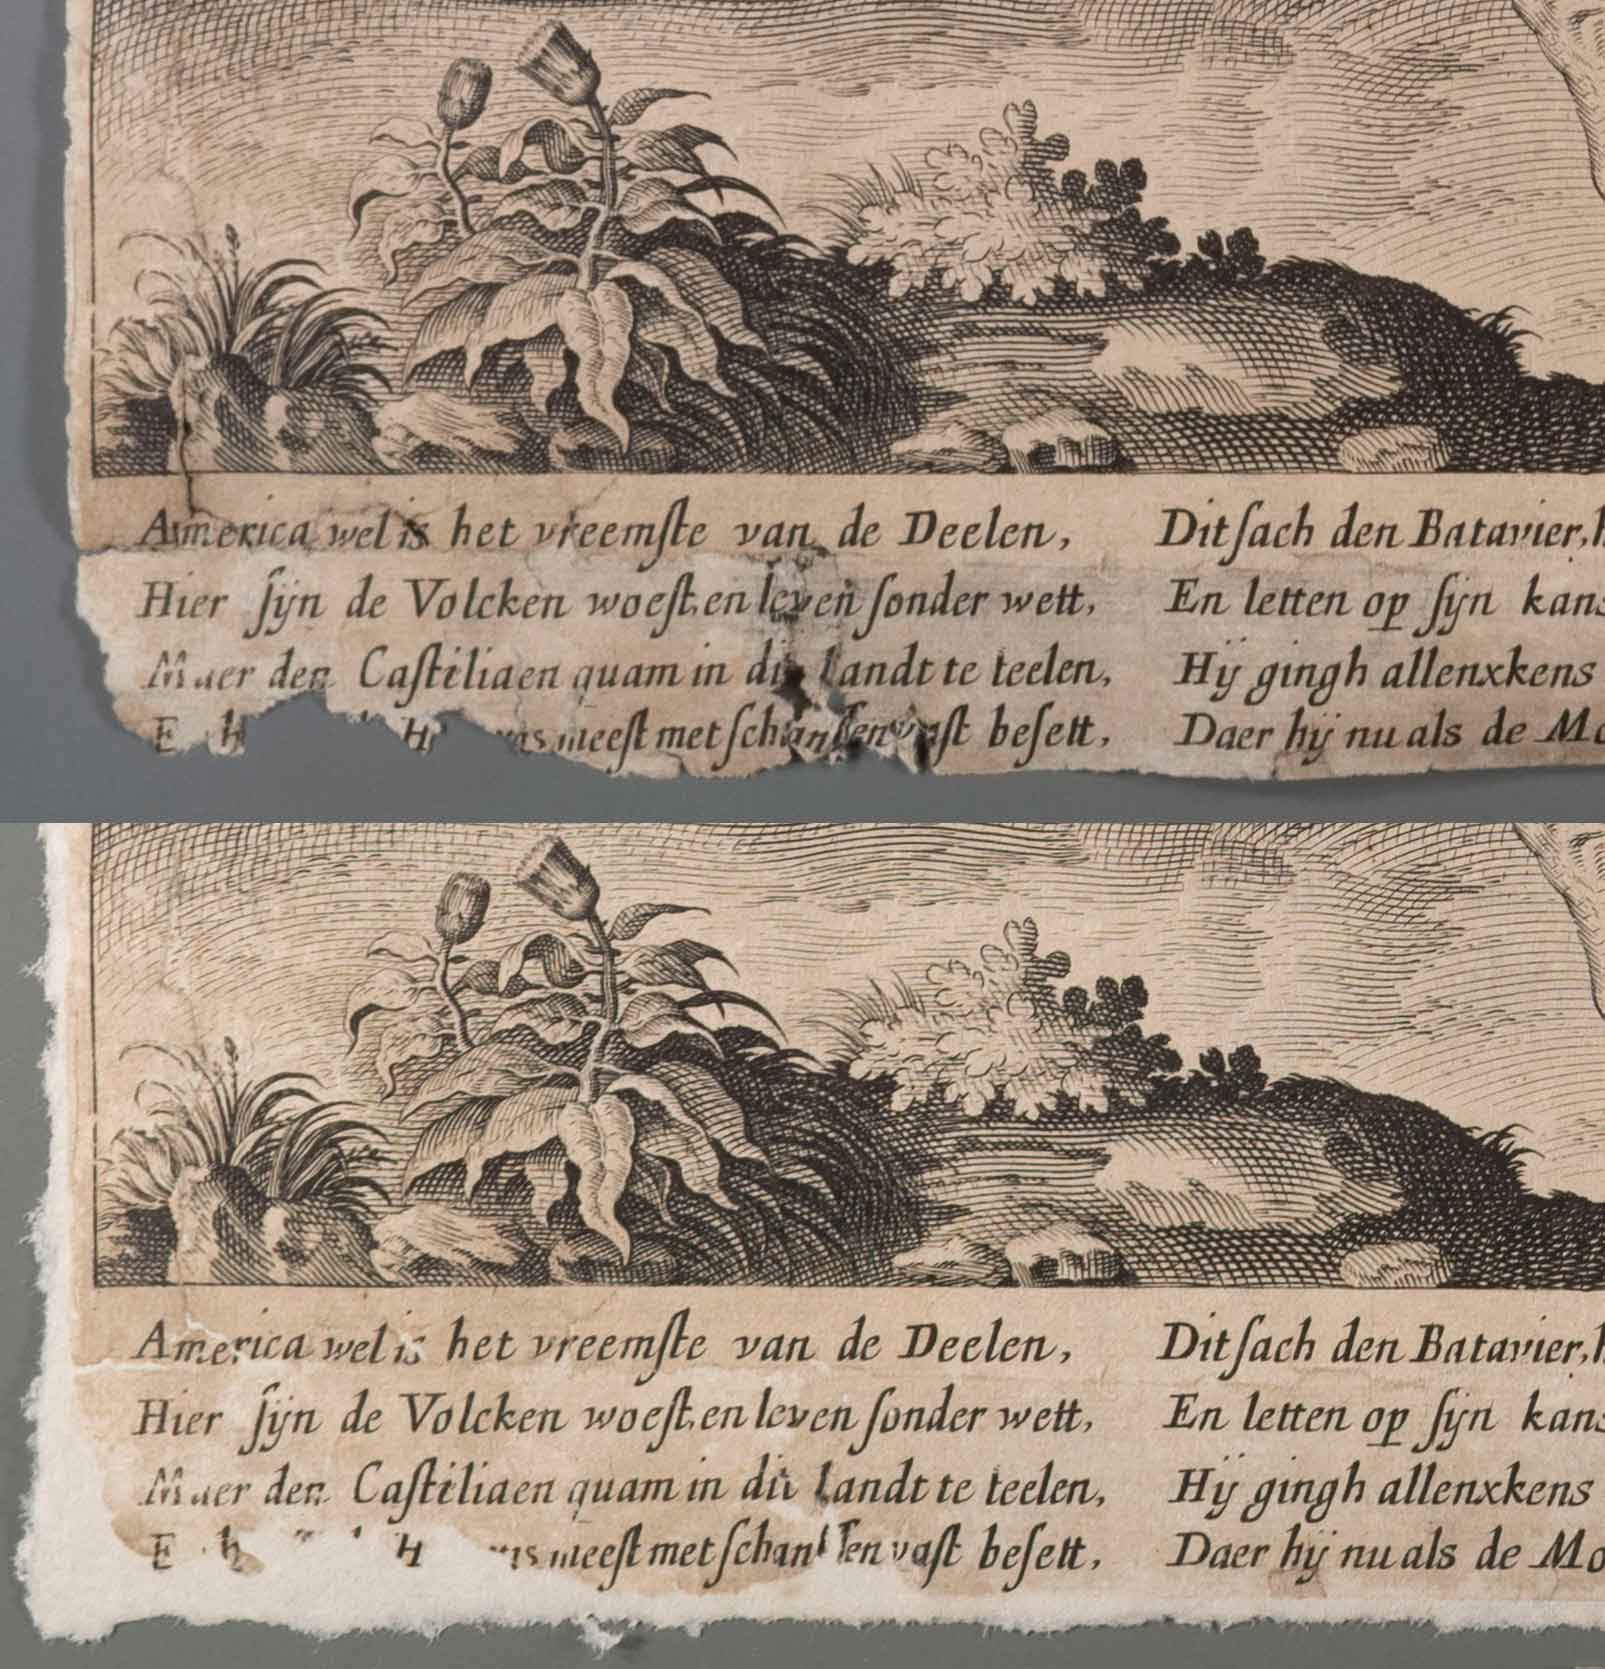 America wel is het vreemſte van de Deelen,
Hier ſijn de Volcken woeſt, en leven ſonder wett,
Maer den Caſtiliaen quam in dit Landt te teelen,
meeſt met ſchanſſen vaſt beſett,
Dit ſach den Batavier,
En letten op ſijn kans
Hij gingh allenxkens
Daer hij nu als de
America wel is het vreemſte van de Deelen,
Hier ſijn de Volcken woeſt, en leven ſonder wett,
Maer den Caſtiliaen quam in dit Landt te teelen,
meeſt met ſchanſſen vaſt beſett,
Dit ſach den Batavier,
En letten op ſijn kans
Hij gingh allenxkens
Daer hij nu als de